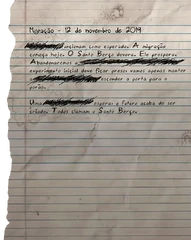 Migração - 12 de novembro de 2019
funcionam como esperado. A migração
começa hoje. O Santo Berço devora. Ele prospera.
Abandonaremos a
experimento inicial deve ficar preso; vamos apenas manter
esconder a porta para o
porão.
Uma esperas o futuro acaba de ser
criado. Todos clamam o Santo Berço.